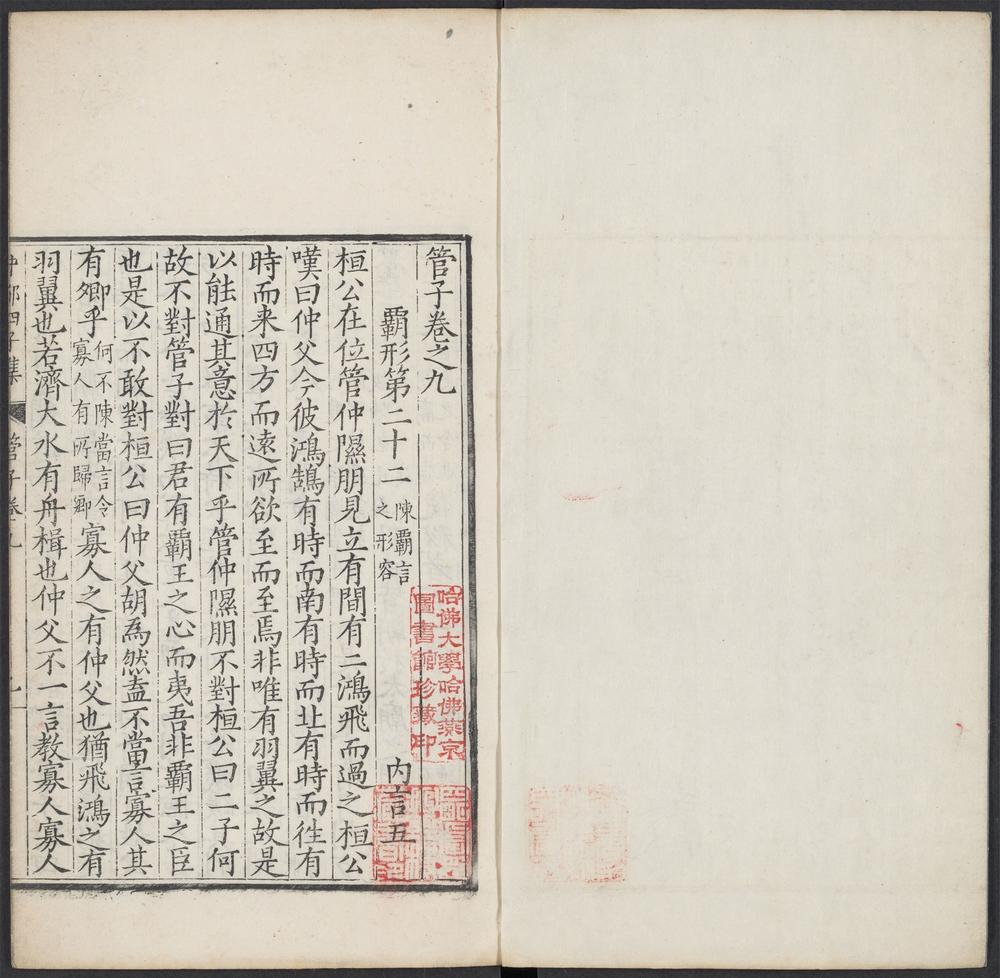 管子卷之九
霸形第二十二 陳霸言之形容 內言五
桓公在位管仲隰朋見立有間有二鴻飛而過之桓公
嘆曰仲父今彼鴻鵠有時而南有時而北有時而往有
時而来四方而遠所欲至而至焉非唯有羽翼之故是
以能通其意於天下乎管仲隰朋不對桓公曰二子何
故不對管子對曰君有霸王之心而夷吾非霸王之臣
也是以不敢對桓公曰仲父胡爲然盍不當言寡人其
有鄉乎 何不陳當言令寡人有所歸鄉 寡人之有仲父也猶飛鴻之有
羽翼也若濟大水有舟楫也仲父不一言教寡人寡人
四子集 管子卷九
哈佛大學哈佛燕京
圖書館珍藏印